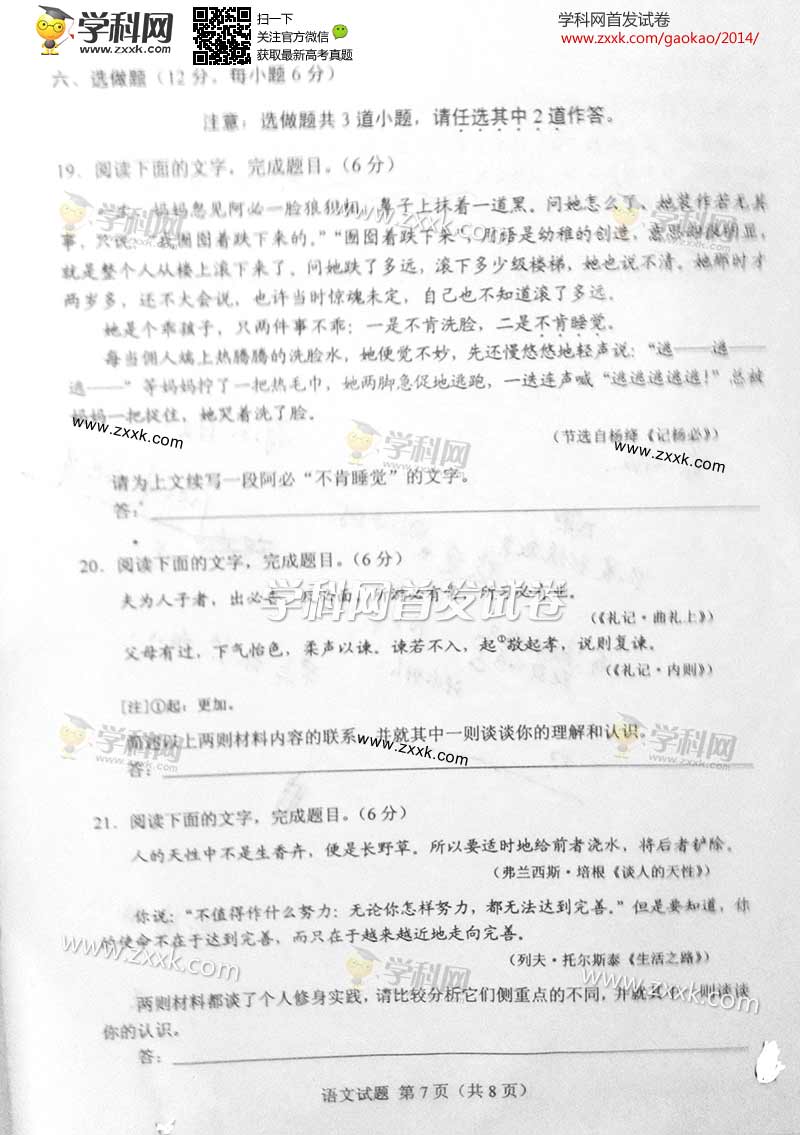 学科网
www.zxxk.com
扫一下
关注官方微信
获取最新高考真题
学科网首发试卷
www.zxxk.com/gaokao/2014/
六、选做题(12分,每小题6分)
注意:选做题共3道小题,请任选其中2道作答。
19.阅读下面的文字,完成题目。(6分)
妈妈忽见阿必一脸狼狈相,鼻子上抹着一道黑。问她怎么了,她装作若无其
事,只说:“我囫囵着跌下来的。”“囫囵着跌下来”,用语是幼稚的创造,意思却很明显,
就是整个人从楼上滚下来了。问她跌了多远,滚下多少级楼梯,她也说不清。她那时才
两岁多,还不大会说,也许当时惊魂未定,自己也不知道滚了多远。
她是个乖孩子,只两件事不乖:一是不肯洗脸,二是不肯睡觉。
每当佣人端上热腾腾的洗脸水,她便觉不妙,先还慢悠悠地轻声说:“逃——逃——
逃——”等妈妈拧了一把热毛巾,她两脚急促地逃跑,一迭连声喊“逃逃逃逃逃!”总被
妈妈一把捉住,她哭着洗了脸。
(节选自杨绛《记杨必》)
请为上文续写一段阿必“不肯睡觉”的文字。
答:
20.阅读下面的文字,完成题目。(6分)
夫为人子者,出必告,反必面,所游必有常,所习必有业。
(《礼记·曲礼上》)
父母有过,下气怡色,柔声以谏。谏若不入,起①敬起孝,说则复谏。
(《礼记·内则》)
[注]①起:更加。
简述以上两则材料内容的联系,并就其中一则谈谈你的理解和认识。
答:
21.阅读下面的文字,完成题目。(6分)
人的天性中不是生香卉,便是长野草。所以要适时地给前者浇水,将后者铲除。
(弗兰西斯·培根《谈人的天性》)
你说:“不值得作什么努力:无论你怎样努力,都无法达到完善。”但是要知道,你
的使命不在于达到完善,而只在于越来越近地走向完善。
(列夫·托尔斯泰《生活之路》)
两则材料都谈了个人修身实践,请比较分析它们侧重点的不同,并就其中一则谈谈
你的认识。
答:
语文试题 第7页(共8页)